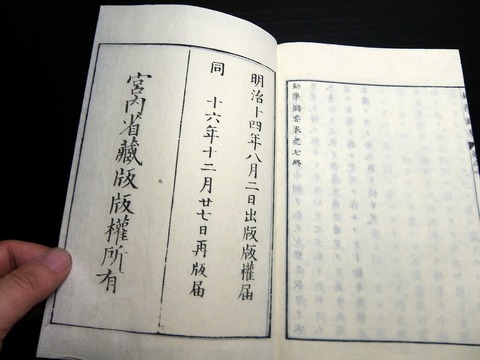 幼學綱要卷之七終
明治十四年八月二日出版版權届
同 十六年十二月廿七日再版届
宮内省藏版版權所有